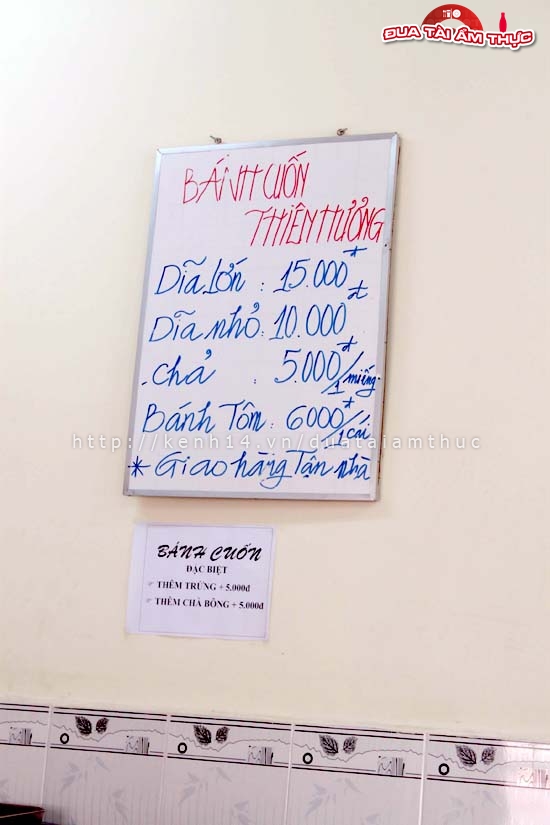 ĐUA TÀI ẨM THỰC
BÁNH CUỐN
THIÊN HƯỞNG
Dĩa lớn : 15.000đ
Dĩa nhỏ : 10.000đ
- chả : 5.000đ/1 miếng
Bánh Tôm : 6000đ/1 cái
http://kenh14.vn/duataiamthuc
* Giao hàng Tận nhà
BÁNH CUỐN
ĐẶC BIỆT
THÊM TRỨNG + 5.000đ
THÊM CHÀ BÔNG + 5.000đ